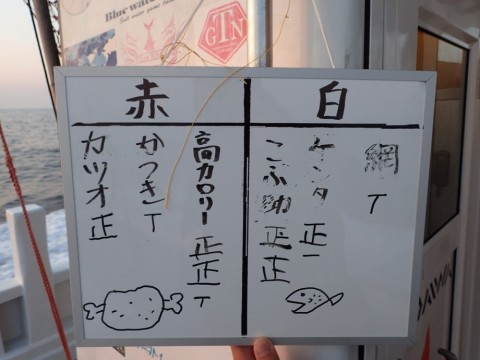 Blue water
GTN
赤
白
網 T
ケンタ 正一
こぶ帥 正正
高カロリー 正正T
かつき T
カツオ 正
DAIWA